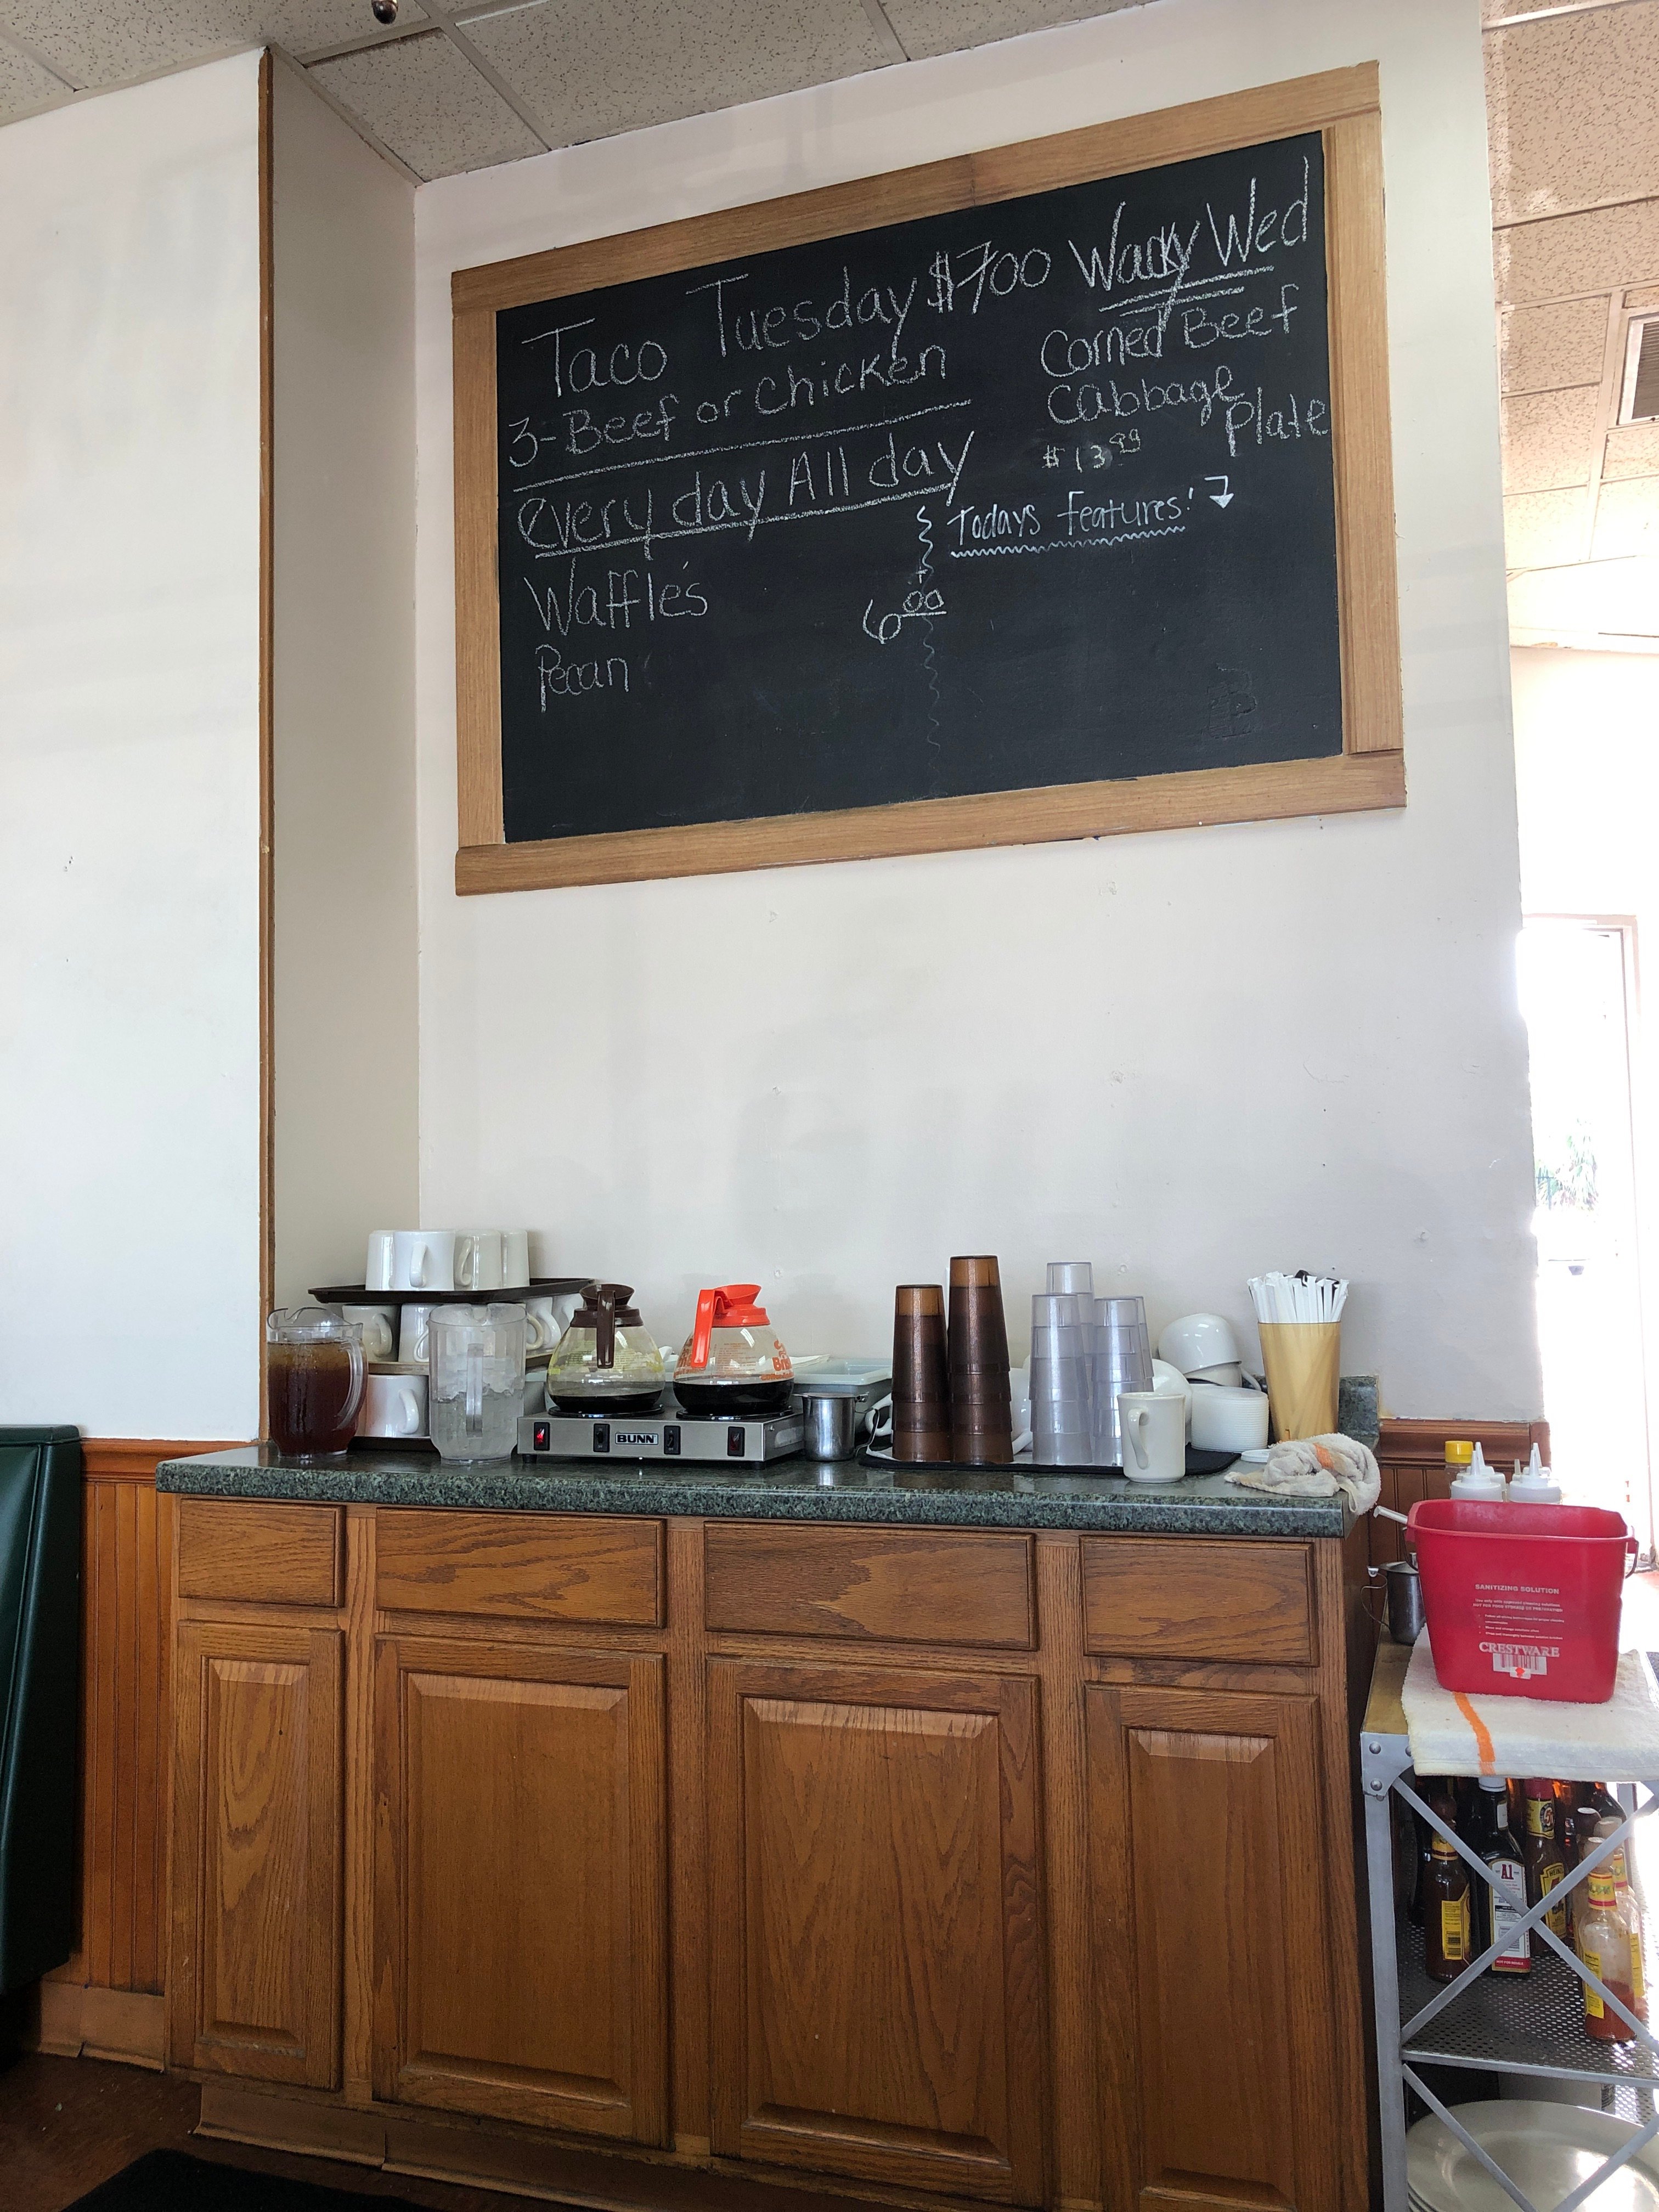 Taco Tuesday $7.00
3-Beef or chicken
every day All day
Waffle's
Pecan
6.00
Wacky Wed
Corned Beef
Cabbage Plate
$13.99
Todays features!
BUNN
SANITIZING SOLUTION
CRESTWARE
A1
HEINZ